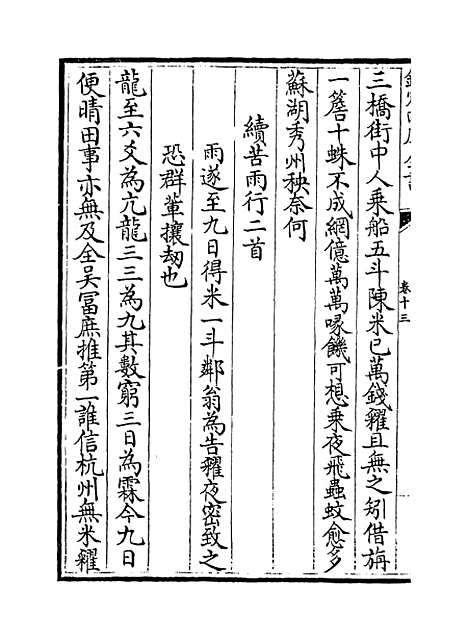 欽定四庫全書
卷十三
三橋街中人乘船五斗陳米已萬錢糴且無之矧借旃
一簷十蛛不成網億萬萬喙饑可想乘夜飛蟲蚊愈多
蘇湖秀州秧奈何
續苦雨行二首
雨遂至九日得米一斗鄰翁為告糴夜密致之
恐群輩攘刼也
龍至六爻為亢龍三三為九其數窮三日為霖今九日
便晴田事亦無及全吳冨庶推第一誰信杭州無米糴